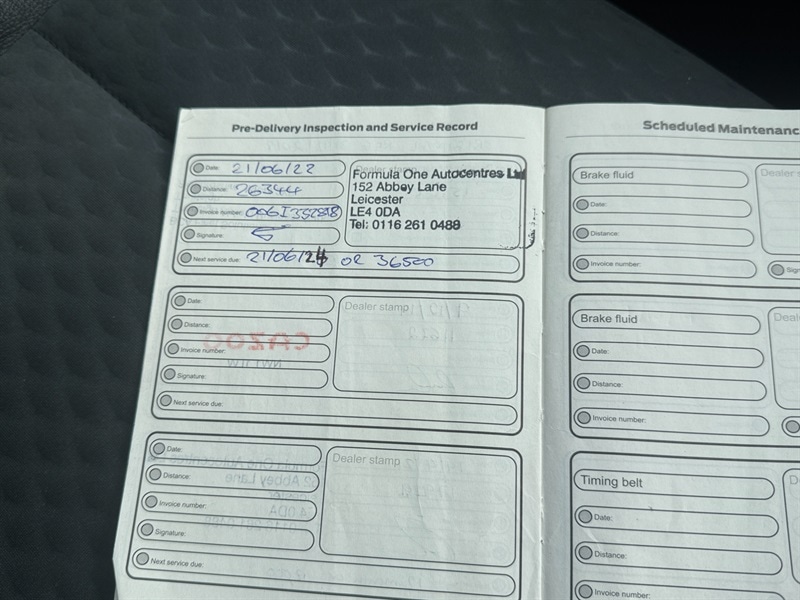 Pre-Delivery Inspection and Service Record
Date: 21/06/22
Distance: 26344
Invoice number:
Signature:
Dealer stamp
Formula One Autocentres Ltd
152 Abbey Lane
Leicester
LE4 0DA
Tel: 0116 261 0488
Next service due: 21/06/24 OR 36500
Date:
Distance:
Invoice number:
Signature:
Dealer stamp
Next service due:
Date:
Distance:
Invoice number:
Signature:
Dealer stamp
Next service due:
Scheduled Maintenanc
Brake fluid
Dealer s
Date:
Distance:
Invoice number:
Sign
Brake fluid
Deal
Date:
Distance:
Invoice number:
Timing belt
D
Date:
Distance:
Invoice number: